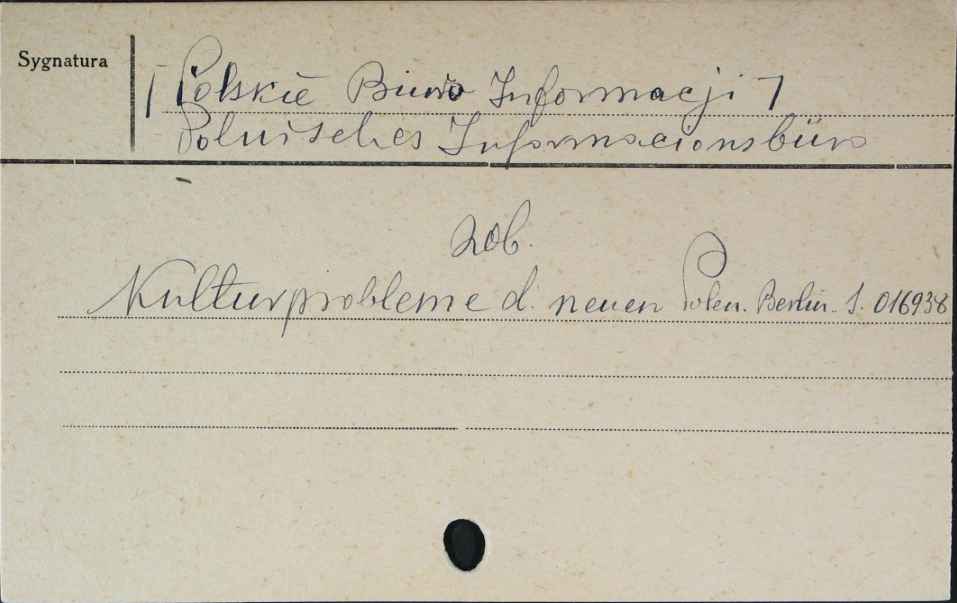 Sygnatura
[Polskie Biuro Informacji]
Polnisches Informacionsbüro
zob.
Kulturprobleme d. neuen Polen. Berlin. S. 016938